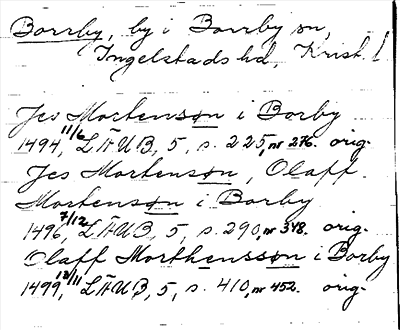 Borrby, by i Borrby sn,
Ingelstads hd, Krist. l
Jes Mortensøn i Borby
1494 11/6, LÄUB, 5, s. 225, nr 276. orig.
Jes Mortensøn, Olaff
Mortensøn i Borby
1496 7/12, LÄUB, 5, s. 290, nr 348. orig.
Olaff Morthenssøn i Borby
1499 12/11, LÄUB, 5, s. 410, nr 452. orig.